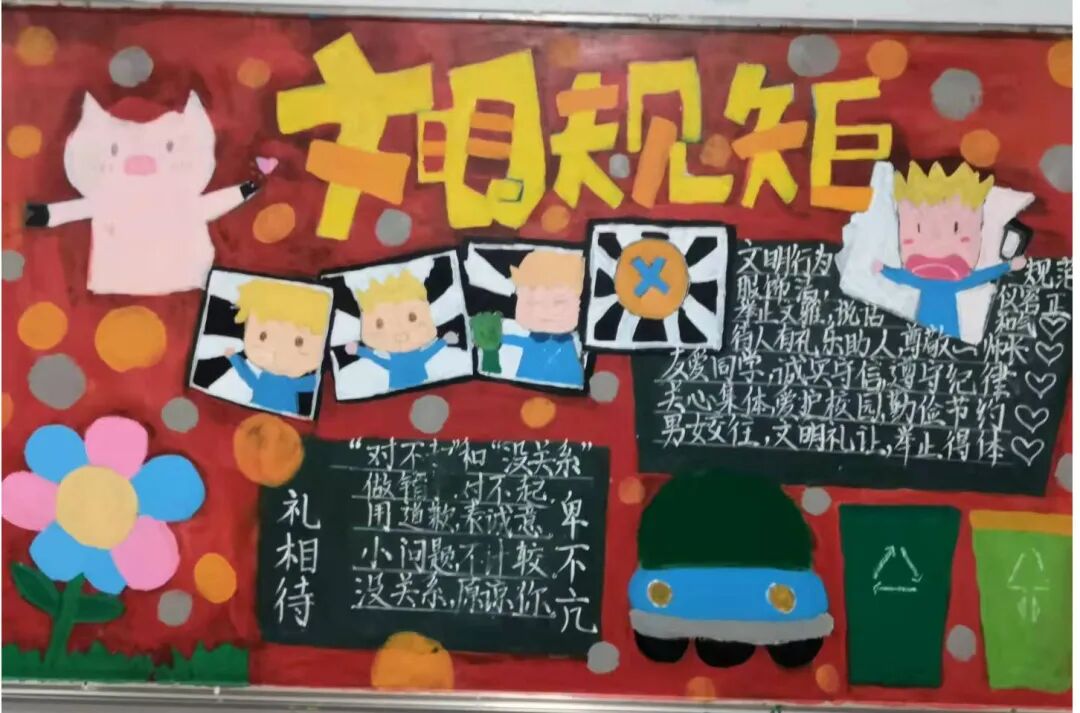 文明规矩
文明行为 规范
服饰 仪容正
举止文雅,说话 和气
待人有礼乐助人尊敬师长
友爱同学,诚实守信,遵守纪律
关心集体爱护校园,勤俭节约
男女交往,文明礼让,举止得体
“对不”和“没关系”
做错 对不起,
用道歉,表诚意
小问题,不计较
没关系,原谅你,
礼相待
卑不亢